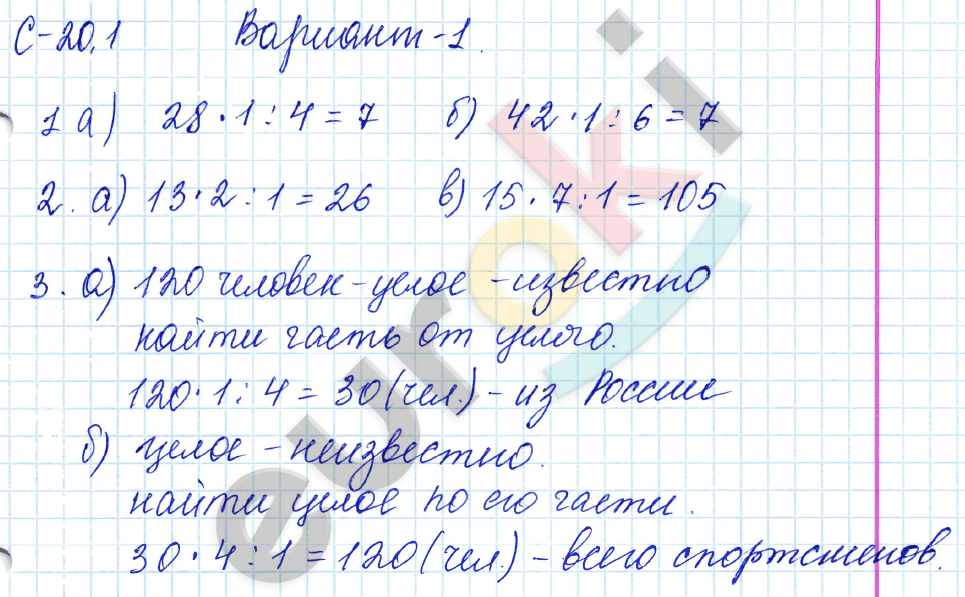 С-20,1 Вариант-1.
1 а) 28·1:4=7 б) 42·1:6=7
2. а) 13·2:1=26 в) 15·7:1=105
3. а) 120 человек-целое-известно
найти часть от целого.
120·1:4=30(чел.)-из России
б) целое-неизвестно.
найти целое по его части.
30·4:1=120(чел.)-всего спортсменов.
euroki